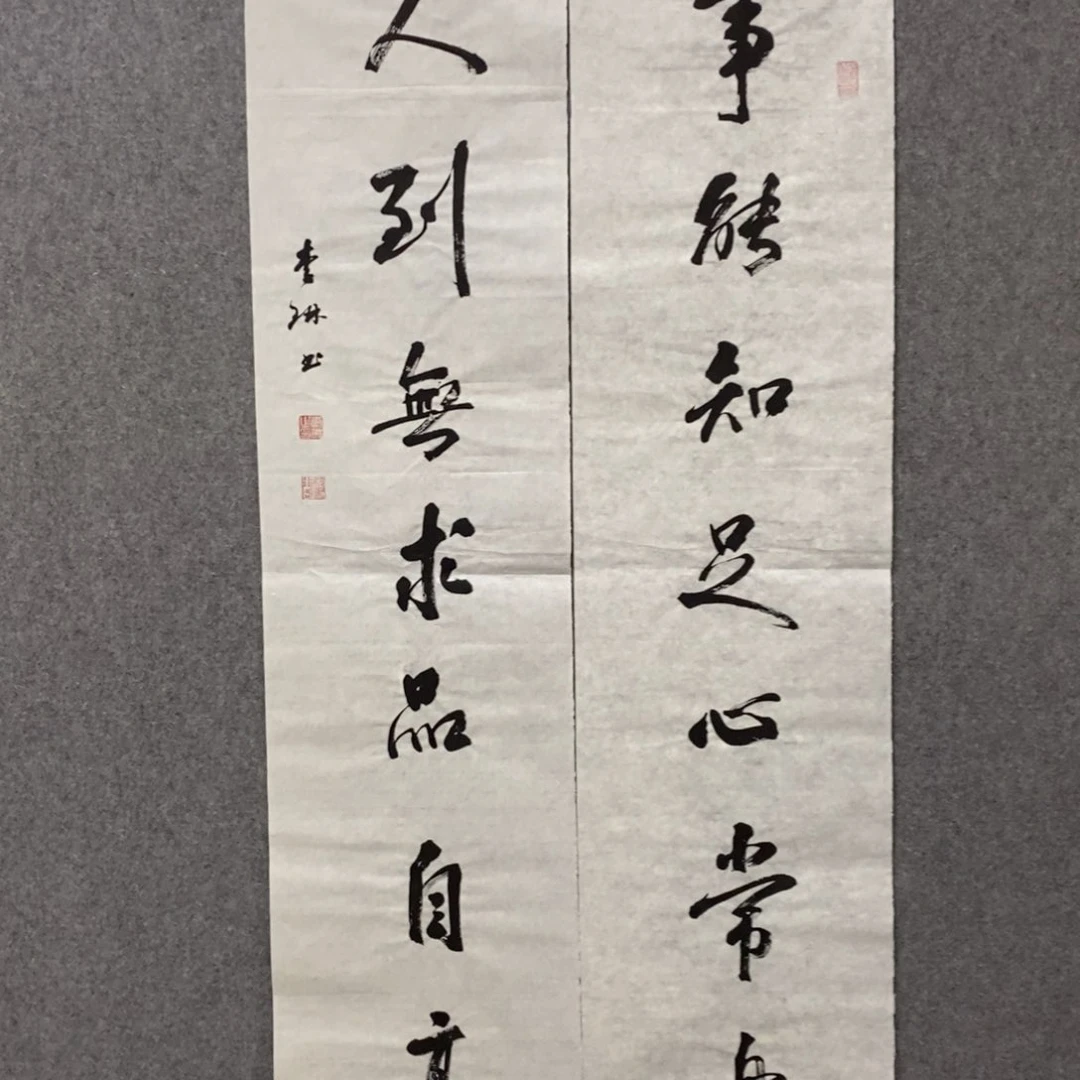 事能知足心常
人到無求品自高
李琳书